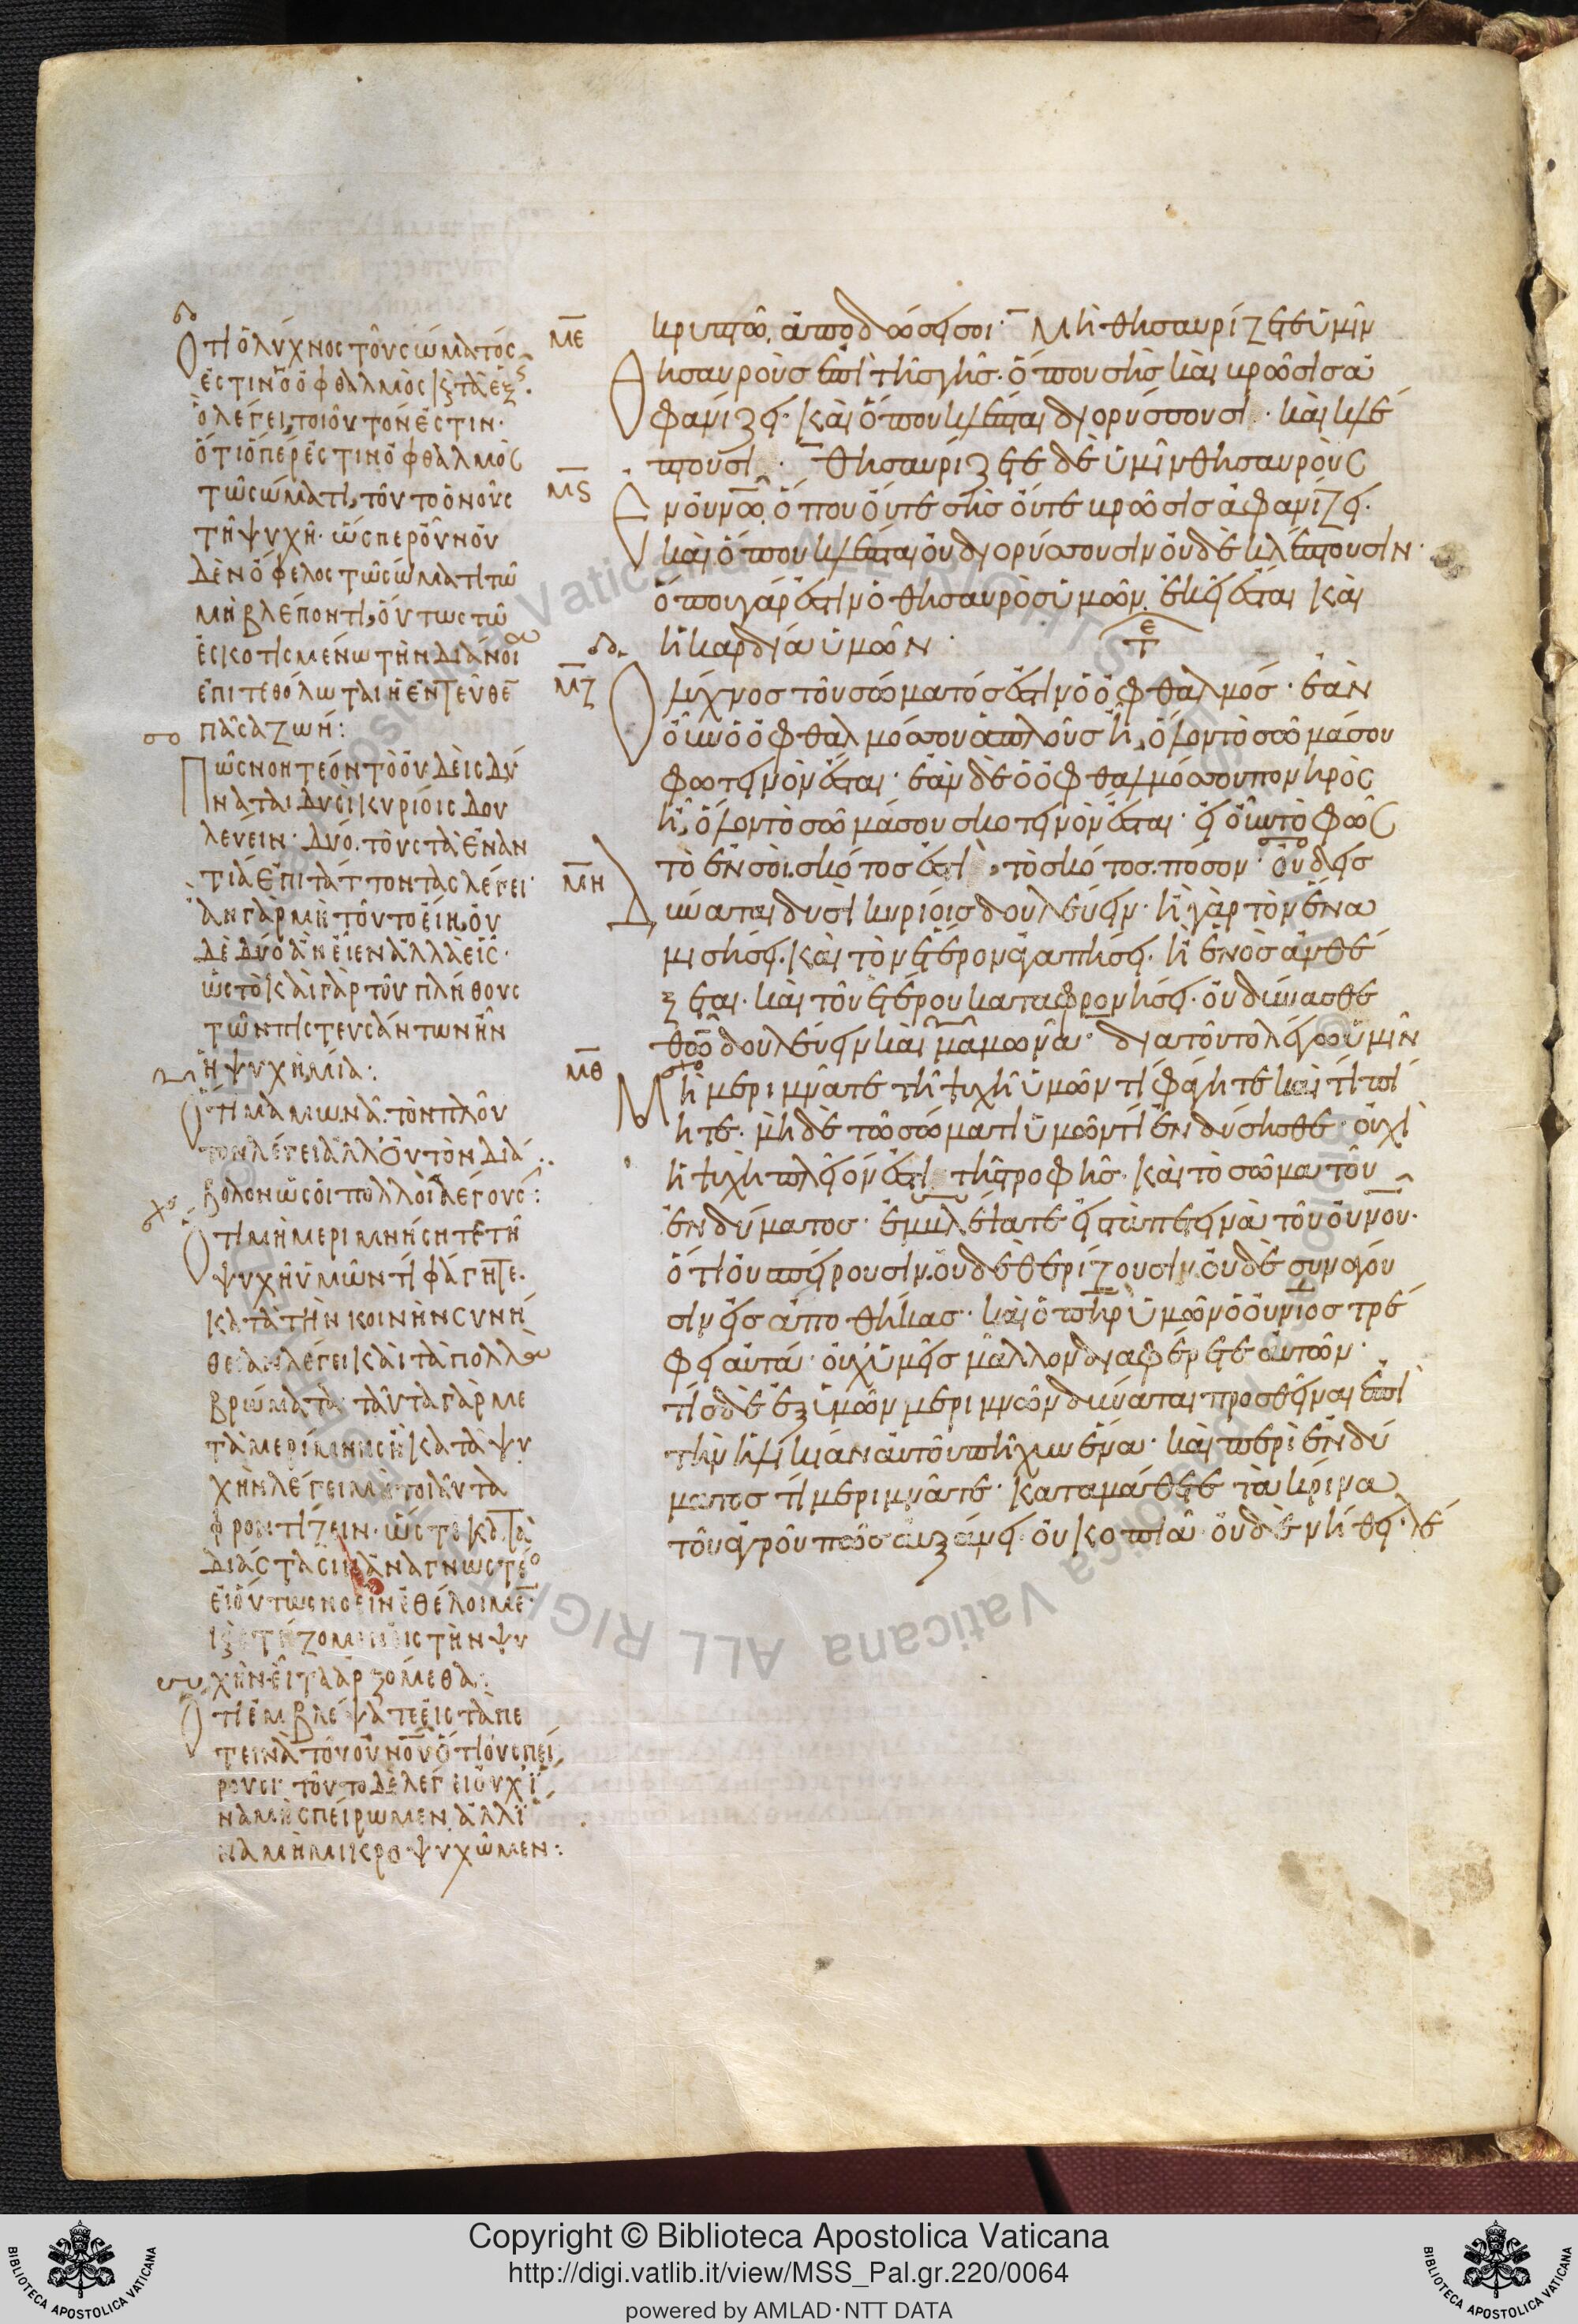 Ὅτι ὁ λύχνος τοῦ σώματός
ἐστιν ὁ ὀφθαλμὸς κ τὰ ἑξῆς.
ὃ λέγει, τοιοῦτόν ἐστιν·
ὅτι ὅπερ ἐστιν ὀφθαλμὸς
τῷ σώματι, τοῦτο ὁ νοῦς
τῇ ψυχῇ· ὥσπερ οὖν οὐ
δὲν ὄφελος τῷ σώματι τῷ
μὴ βλέποντι, οὕτως τῷ
ἐσκοτισμένω τὴν διάνοια
ἐπιτεθόλωται ἡ ἐντεῦθεν
πᾶσα ζωή:
Πῶς νοητέον τὸ οὐδεὶς δύ
ναται δυσὶ κυρίοις δου
λεύειν· δύο, τοὺς τὰ ἐναν
τία ἐπιτάττοντας λέγει·
ἂν γὰρ μὴ τοῦτο εἴη, οὐ
δὲ δύο ἂν εἶεν ἀλλὰ εἷς·
ὡς τὸ καὶ γὰρ τοῦ πλήθους
τῶν πιστευσάντων ἦν
ἡ ψυχὴ μία:
Ὅτι μαμωνᾶ τὸν πλοῦ
τον λέγει ἀλλ' οὐ τὸν διά
βολον ὡς οἱ πολλοὶ λέγουσι:
Ὅτι μὴ μεριμνήσητε τῇ
ψυχῇ ὑμῶν τί φάγητε.
κατὰ τὴν κοινὴν συνή
θειαν λέγει καὶ τὰ πολλὰ
βρώματα· ταῦτα γὰρ με
τὰ μερίμνης ἢ κατὰ ψυ
χὴν λέγει μὴ τοιαῦτα
φροντίζειν· ὥστε κατὰ
διάστασιν ἀναγνωστέον
εἰ οὕτως νοεῖν ἐθέλοιμεν
εἰς τὴν ψυ
χὴν εἶτα ἀρξόμεθα:
Ὅτι ἐμβλέψατε εἰς τὰ πε
τεινὰ τοῦ οὐνοῦ ὅτι οὐ σπεί
ρουσι· τοῦτο δὲ λέγει οὐχ ἵ
να μὴ σπείρωμεν, ἀλλ' ἵ
να μὴ μικροψυχῶμεν:
κρυπτῶ, ἀποδώσει σοι· Μὴ θησαυρίζετε ὑμῖν
ΜΕ θησαυροὺς ἐπὶ τῆς γῆς· ὅπου σὴς καὶ βρῶσις ἀ
φανίζει· καὶ ὅπου κλέπται διορύσσουσι· καὶ κλέ
πτουσι· θησαυρίζετε δὲ ὑμῖν θησαυροὺς
Μς ἐν οὐνῶ, ὅπου οὔτε σὴς οὔτε βρῶσις ἀφανίζει·
καὶ ὅπου κλέπται οὐ διορύσσουσιν οὐδὲ κλέπτουσιν·
ὅπου γάρ ἐστιν ὁ θησαυρὸς ὑμῶν, ἐκεῖ ἔσται καὶ
ἡ καρδία ὑμῶν·
ΜΖ Ὁ λύχνος τοῦ σώματός ἐστιν ὁ ὀφθαλμός· ἐὰν
οὖν ὁ ὀφθαλμός σου ἁπλοῦς ᾖ, ὅλον τὸ σῶμά σου
φωτεινὸν ἔσται· ἐὰν δὲ ὁ ὀφθαλμός σου πονηρὸς
ᾖ, ὅλον τὸ σῶμά σου σκοτεινὸν ἔσται· εἰ οὖν τὸ φῶς
τὸ ἐν σοὶ σκότος ἐστὶ, τὸ σκότος πόσον· οὐδεὶς
ΜΗ δύναται δυσὶ κυρίοις δουλεύειν· ἢ γὰρ τὸν ἕνα
μισήσει· καὶ τὸν ἕτερον ἀγαπήσει· ἢ ἑνὸς ἀνθέ
ξεται· καὶ τοῦ ἑτέρου καταφρονήσει· οὐ δύνασθε
θῶ δουλεύειν καὶ μαμωνᾶ· διατοῦτο λέγω ὑμῖν
ΜΘ Μὴ μεριμνᾶτε τῇ ψυχῇ ὑμῶν τί φάγητε καὶ τί πί
ητε· μὴδὲ τῶ σώματι ὑμῶν τί ἐνδύσησθε· οὐχὶ
ἡ ψυχὴ πλεῖόν ἐστι τῆς τροφῆς· καὶ τὸ σῶμα τοῦ
ἐνδύματος· ἐμβλέψατε εἰς τὰ πετεινὰ τοῦ οὐνου·
ὅτι οὐ σπείρουσιν. οὐδὲ θερίζουσιν. οὐδὲ συνάγου
σιν εἰς ἀποθήκας· καὶ ὁ πηρ ὑμῶν ὁ οὐνιος τρέ
φει αὐτά· οὐχ ὑμεῖς μᾶλλον διαφέρετε αὐτῶν·
τίς δὲ ἐξ ὑμῶν μεριμνῶν δύναται προσθεῖναι ἐπὶ
τὴν ἡλικίαν αὐτοῦ πῆχυν ἕνα· καὶ περὶ ἐνδύ
ματος τί μεριμνᾶτε· καταμάθετε τὰ κρίνα
τοῦ ἀγροῦ πῶς αὐξάνει· οὐ κοπιᾶ οὐδὲ νήθει· λέ
Copyright © Biblioteca Apostolica Vaticana
http://digi.vatlib.it/view/MSS_Pal.gr.220/0064
powered by AMLAD·NTT DATA